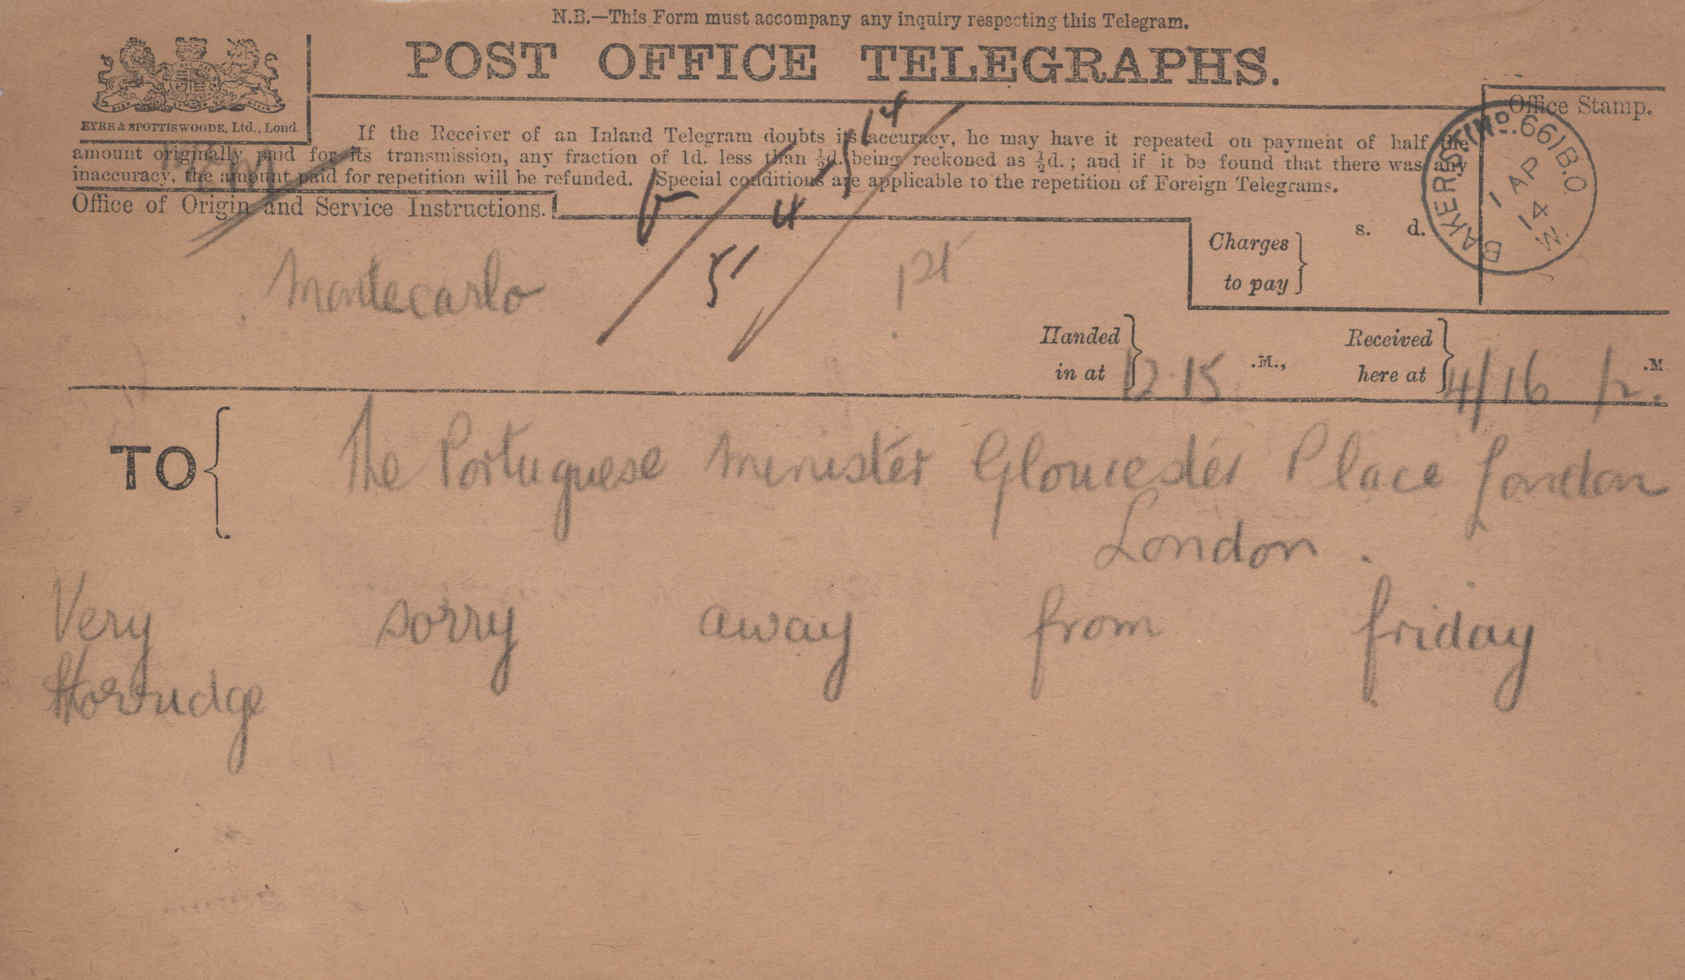 N.B.—This Form must accompany any inquiry respecting this Telegram.
POST OFFICE TELEGRAPHS.
EYRE & SPOTTISWOODE, Ltd., Lond.
If the Receiver of an Inland Telegram doubts its accuracy, he may have it repeated on payment of half the
amount originally paid for its transmission, any fraction of 1d. less than ½d. being reckoned as ½d.; and if it be found that there was any
inaccuracy, the amount paid for repetition will be refunded. Special conditions are applicable to the repetition of Foreign Telegrams.
Office of Origin and Service Instructions.
Office Stamp.
BAKER ST No. 66 B.O. W.
1 AP
14
5/4/14
51
Montecarlo
1st
Charges
to pay
s. d.
Handed
in at
12.15
.M.,
Received
here at
4/16
.M
TO
The Portuguese Minister Gloucester Place London
London.
Very sorry away from friday